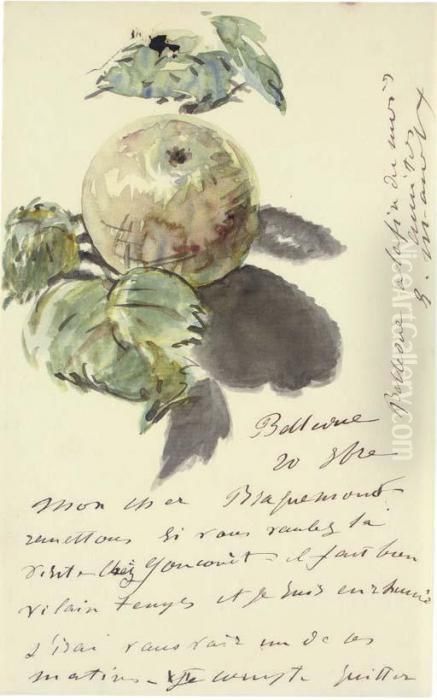 Bellevue
20 9bre
Mon cher Bracquemond
remettons si vous voulez la
visite chez Goncourt - il fait bien
vilain temps et je suis enrhumé
J'irai vous voir un de ces
matins - Je compte quitter
Bellevue à la fin du mois
Amitiés
E. Manet
NiceArtGallery.com